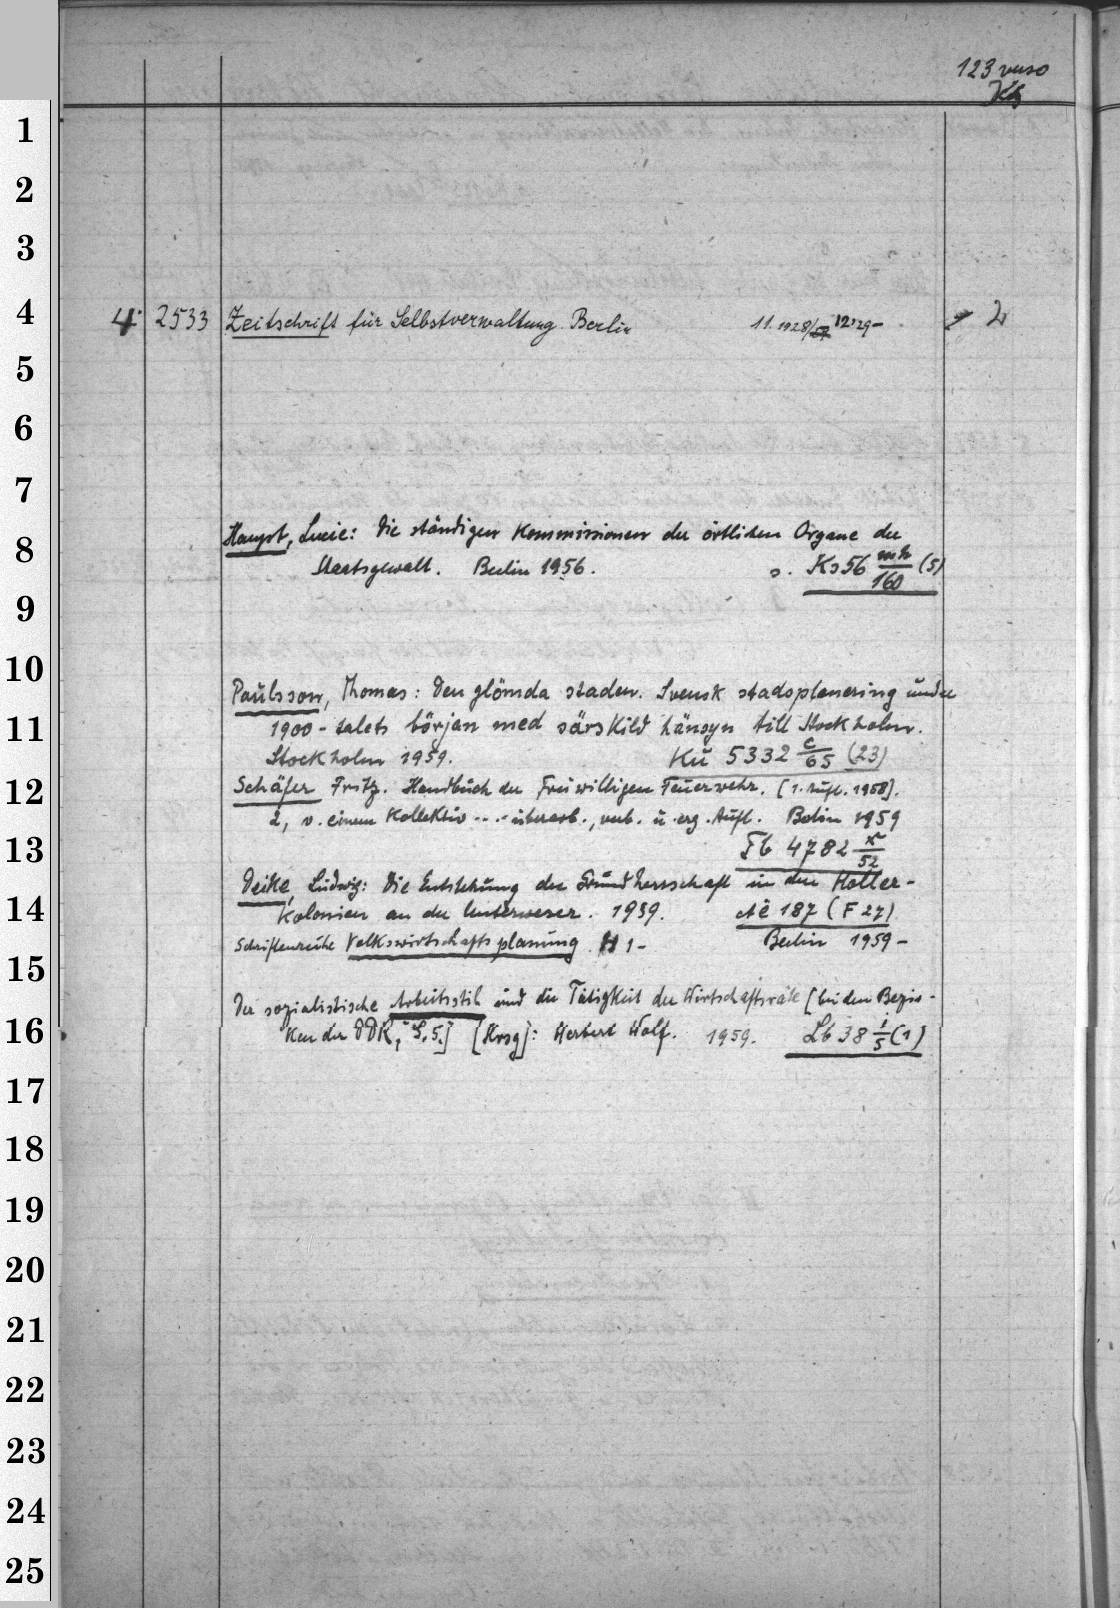 123 verso
Kb
1
2
3
4
4° 2533 Zeitschrift für Selbstverwaltung Berlin 11.1928/ 12.'29- 2
5
6
7
Haupt, Lucie: Die ständigen Kommissionen der örtlichen Organe der
8
Staatsgewalt. Berlin 1956. s. Ks 56 mh/160 (5)
9
10
Paulsson, Thomas: Den glömda staden. Svensk stadsplanering under
11
1900-talets början med särskild hänsyn till Stockholm.
Stockholm 1959. Kü 5332 c/65 (23)
12
Schäfer Fritz. Handbuch der Freiwilligen Feuerwehr. [1. Aufl. 1958].
2, v. einem Kollektiv ... überarb., verb. u. erg. Aufl. Berlin 1959
13
Fb 4782 x/52
Deike, Ludwig: Die Entstehung der Grundherrschaft in den Holler-
14
kolonien an der Unterweser. 1959. Ae 187 (F 27)
Schriftenreihe Volkswirtschaftsplanung H 1- Berlin 1959-
15
Der sozialistische Arbeitsstil und die Tätigkeit der Wirtschaftsräte [bei den Bezir-
16
ken der DDR, S. 5.] [Hrsg]: Herbert Wolf. 1959. Lb 38 i/5 (1)
17
18
19
20
21
22
23
24
25